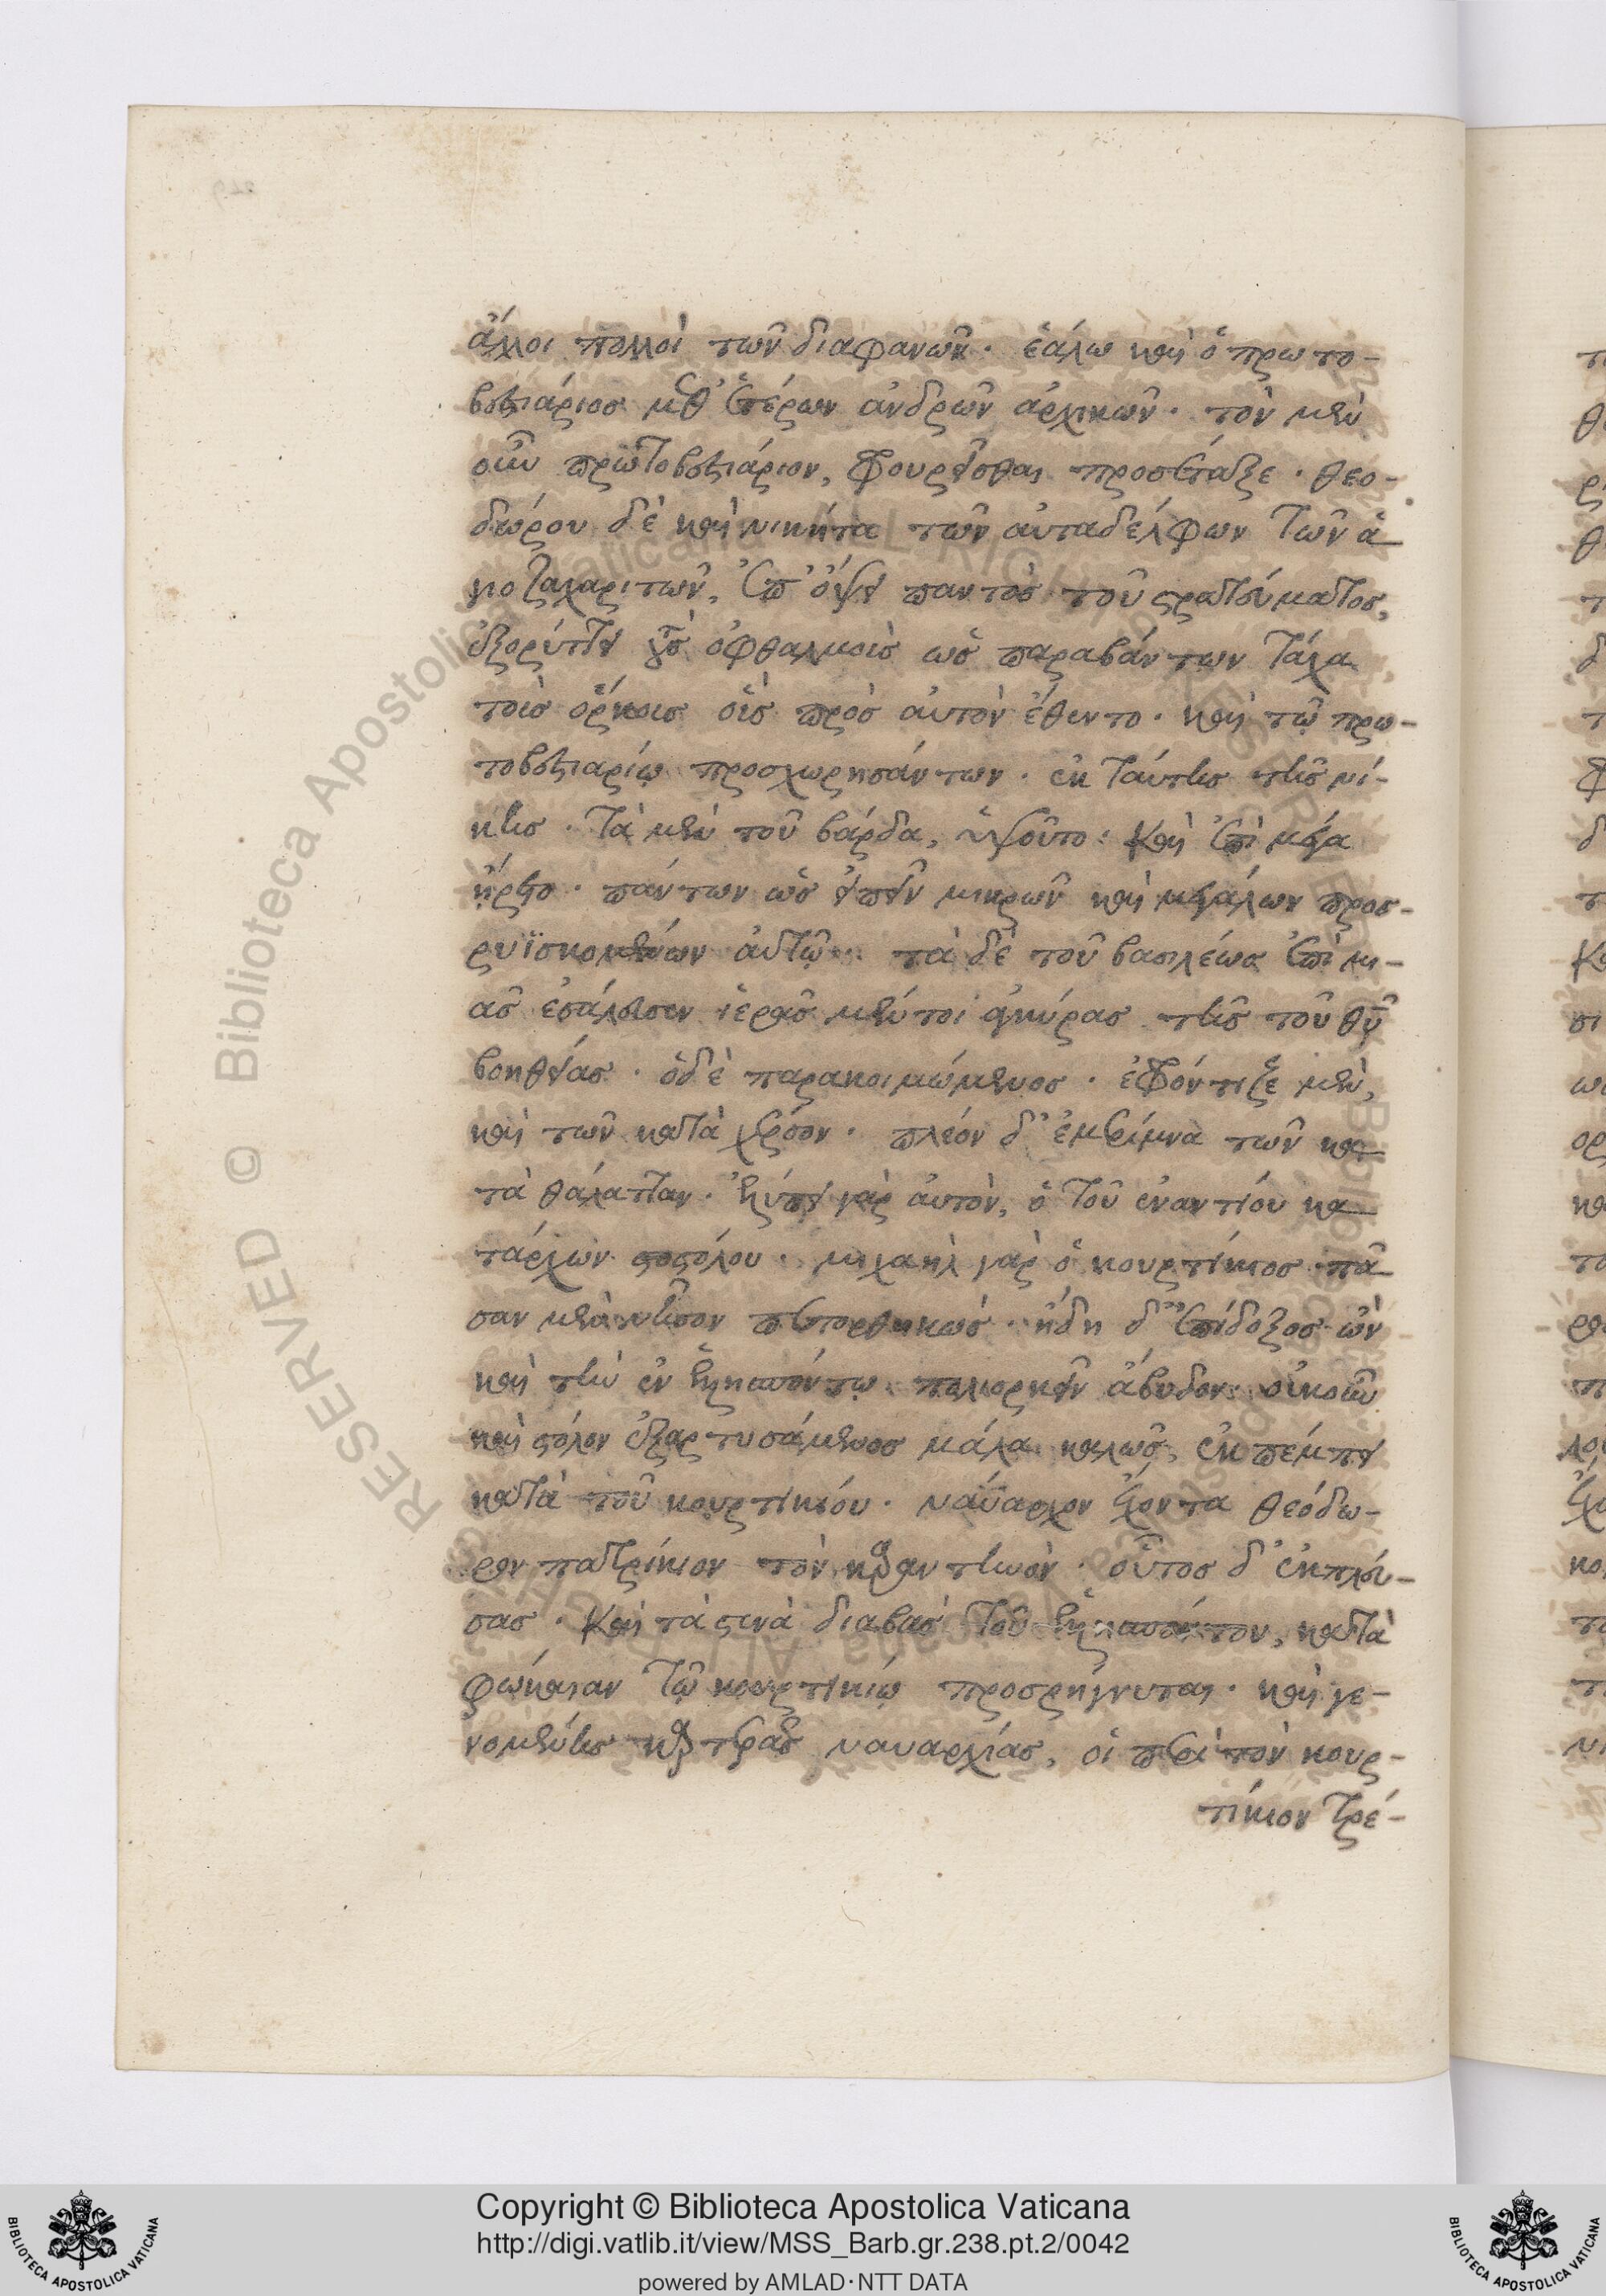 ἄλλοι πολλοὶ τῶν διαφανῶν. ἑάλω καὶ ὁ πρωτο-
βεστιάριος μεθ' ἑτέρων ἀνδρῶν ἀρχικῶν. τὸν μὲν
οὖν πρωτοβεστιάριον, φρουρεῖσθαι προσέταξε. θεο-
δώρου δὲ καὶ νικήτα τῶν αὐταδέλφων τῶν ἁ-
γιοζαχαριτῶν, ἐπ' ὄψει παντὸς τοῦ στρατεύματος,
ἐξορύττει τοὺς ὀφθαλμοὺς ὡς παραβάντων τάχα
τοῖς ὅρκοις οἷς πρὸς αὐτὸν ἔθεντο. καὶ τῷ πρω-
τοβεστιαρίῳ προσχωρησάντων. ἐκ ταύτης τῆς νί-
κης. τὰ μὲν τοῦ βάρδα, ὑψοῦτο: καὶ ἐπὶ μέγα
ᾔρετο. πάντων ὡς εἰπεῖν μικρῶν καὶ μεγάλων προσ-
ρυϊσκομένων αὐτῷ. τὰ δὲ τοῦ βασιλέως ἐπὶ μι-
ᾶς ἐσάλευεν ἱερᾶς μέντοι ἀγκύρας τῆς τοῦ θῦ
βοηθείας. ὁ δὲ παρακοιμώμενος. ἐφρόντιζε μὲν,
καὶ τῶν κατὰ χέρσον. πλέον δ' ἐμερίμνα τῶν κα-
τὰ θάλατταν. ἐλύπει γὰρ αὐτὸν, ὁ τοῦ ἐναντίου κα-
τάρχων στόλου. μιχαὴλ γὰρ ὁ κουρτίκιος πᾶ-
σαν μὲν νῆσον πεπορθηκώς. ἤδη δ' ἐπίδοξος ὢν
καὶ τὴν ἐν ἑλλησπόντῳ πολιορκεῖν ἄβυδον. οὐκοῦν
καὶ στόλον ἐξαρτυσάμενος μάλα καλῶς, ἐκπέμπει
κατὰ τοῦ κουρτικίου. ναύαρχον ἔχοντα θεόδω-
ρον πατρίκιον τὸν καραντηνόν. οὗτος δ' ἐκπλεύ-
σας. καὶ τὰ στενὰ διαβὰς τοῦ ἑλλησπόντου, κατὰ
φώκαιαν τῷ κουρτικίῳ προσρήγνυται. καὶ γε-
νομένης καρτερᾶς ναυαρχίας, οἱ περὶ τὸν κουρ-
τίκιον τρέ-
Copyright © Biblioteca Apostolica Vaticana
http://digi.vatlib.it/view/MSS_Barb.gr.238.pt.2/0042
powered by AMLAD·NTT DATA